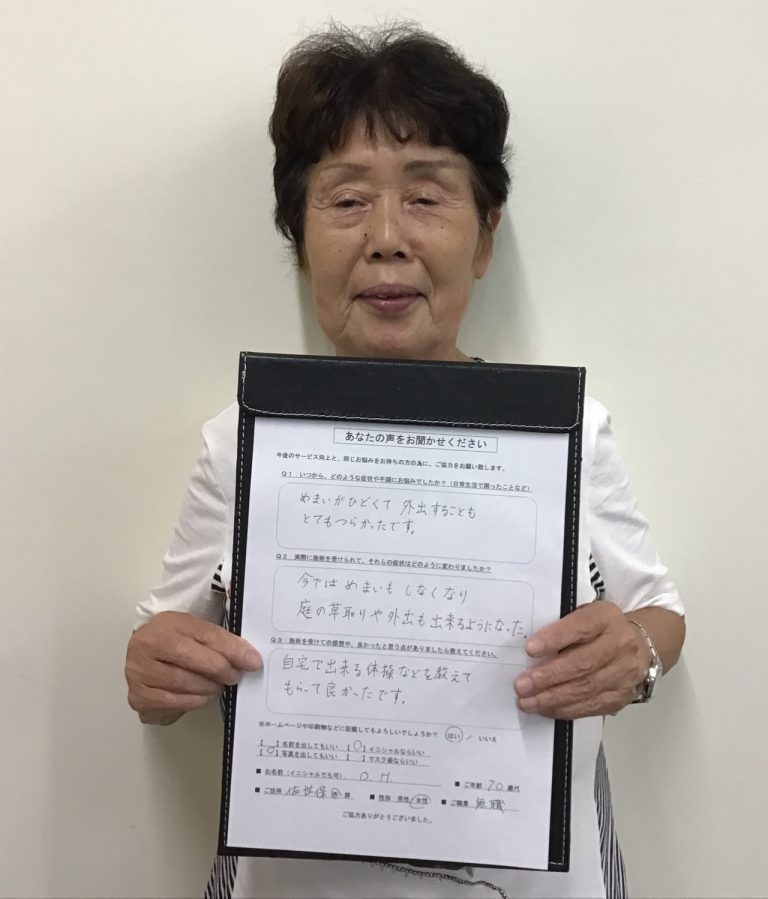 あなたの声をお聞かせください
今後のサービス向上と、同じお悩みをお持ちの方の為に、ご協力をお願い致します。
Q1:いつから、どのような症状や不調にお悩みでしたか?(日常生活で困ったことなど)
めまいがひどくて、外出することも
とてもつらかったです。
Q2:実際に施術を受けられて、それらの症状はどのように変わりましたか?
今ではめまいもしなくなり
庭の草取りや外出も出来るようになった。
Q3 施術を受けての感想や、良かったと思う点がありましたら教えてください。
自宅で出来る体操などを教えて
もらって良かったです。
※ホームページや印刷物などに記載してもよろしいでしょうか? はい / いいえ
【 】名前を出してもいい 【○】イニシャルならいい
【○】写真を出してもいい 【 】マスク姿ならいい
■ お名前(イニシャルでも可) O.H. ■ ご年齢 70 歳代
■ ご住所 佐世保 市 ■ 性別 男性/女性 ■ ご職業 無職
ご協力ありがとうございました。